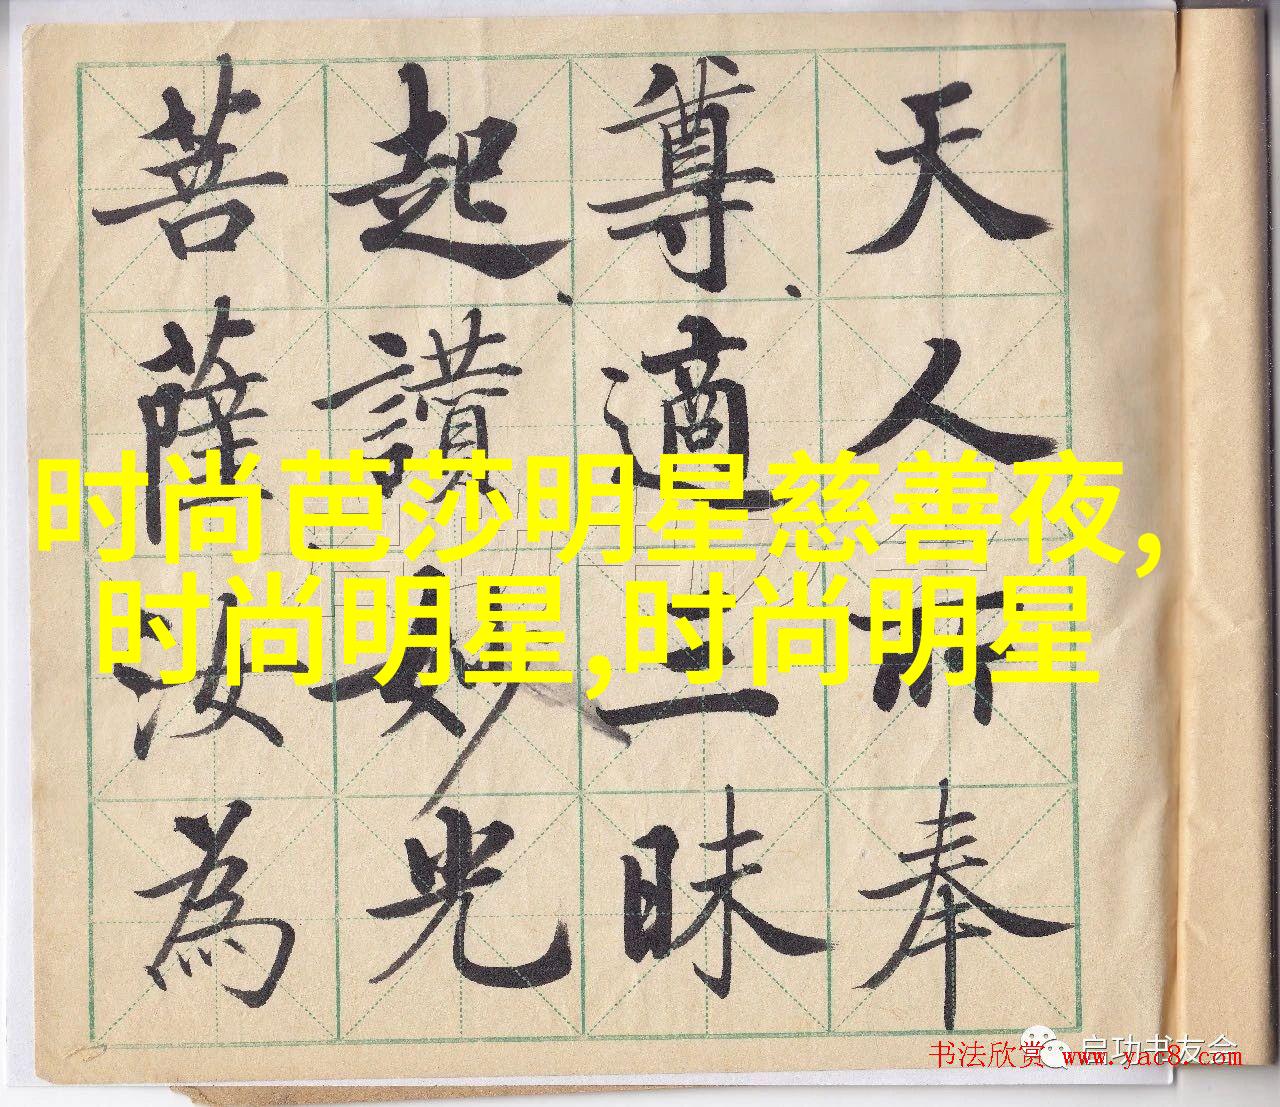 天人所奉
尊、適三昧
起、讚妙光
菩薩汝為
时尚芭莎明星慈善夜,
时尚明星,时尚明星
启功书友会
书法欣赏 www.yac8.com